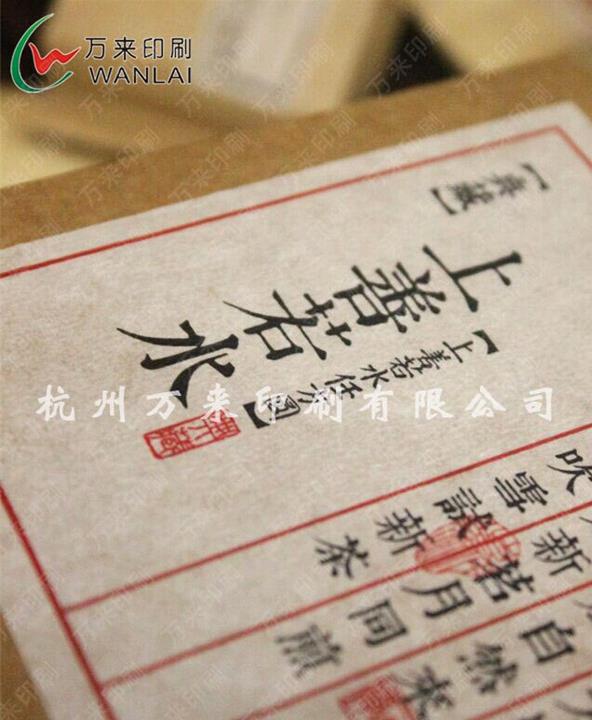 万来印刷
WANLAI
【典藏】
上善若水
【上善若水任方圓】
杭州万来印刷有限公司
吹雪試新茶
新茗月同煎
自然來